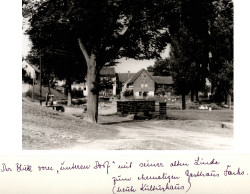 Der Blick vom "unteren Dorf" mit seiner alten Linde
zum ehemaligen Gasthaus
(heute Kulturhaus)